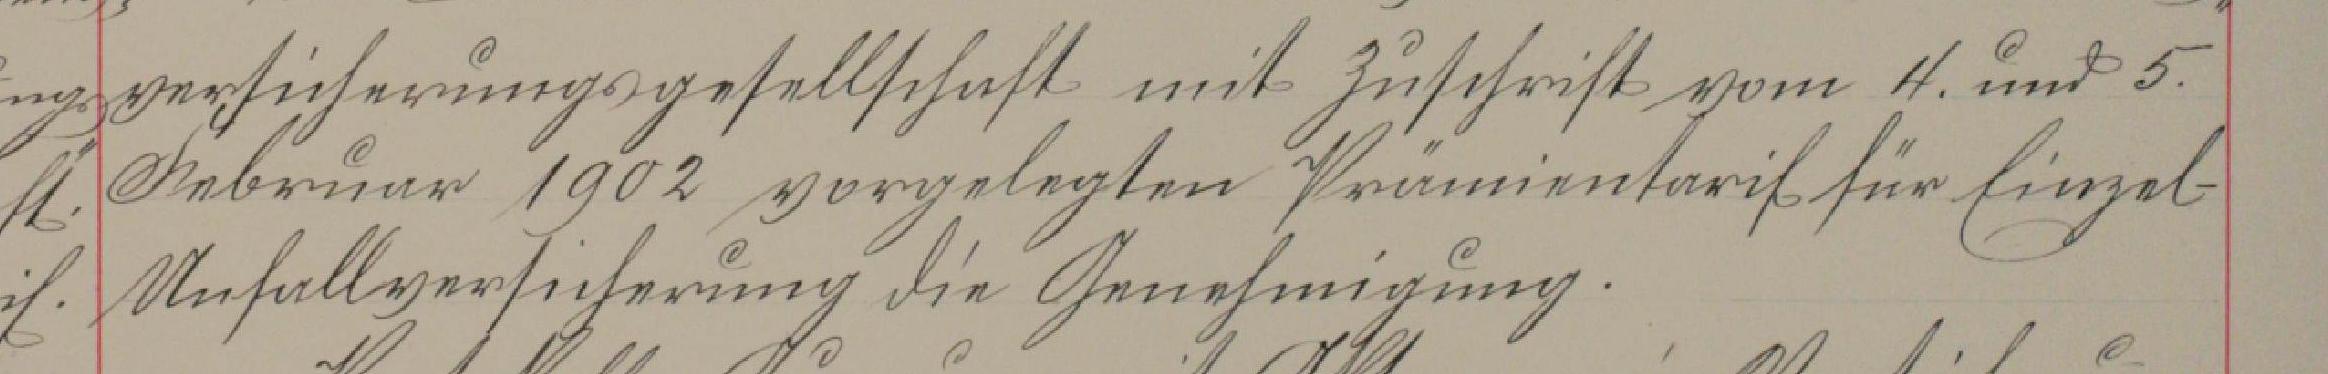 versicherungsgesellschaft mit Zuschrift vom 4. und 5.
Februar 1902 vorgelegten Prämientarif für Einzel-
Unfallversicherung die Genehmigung.